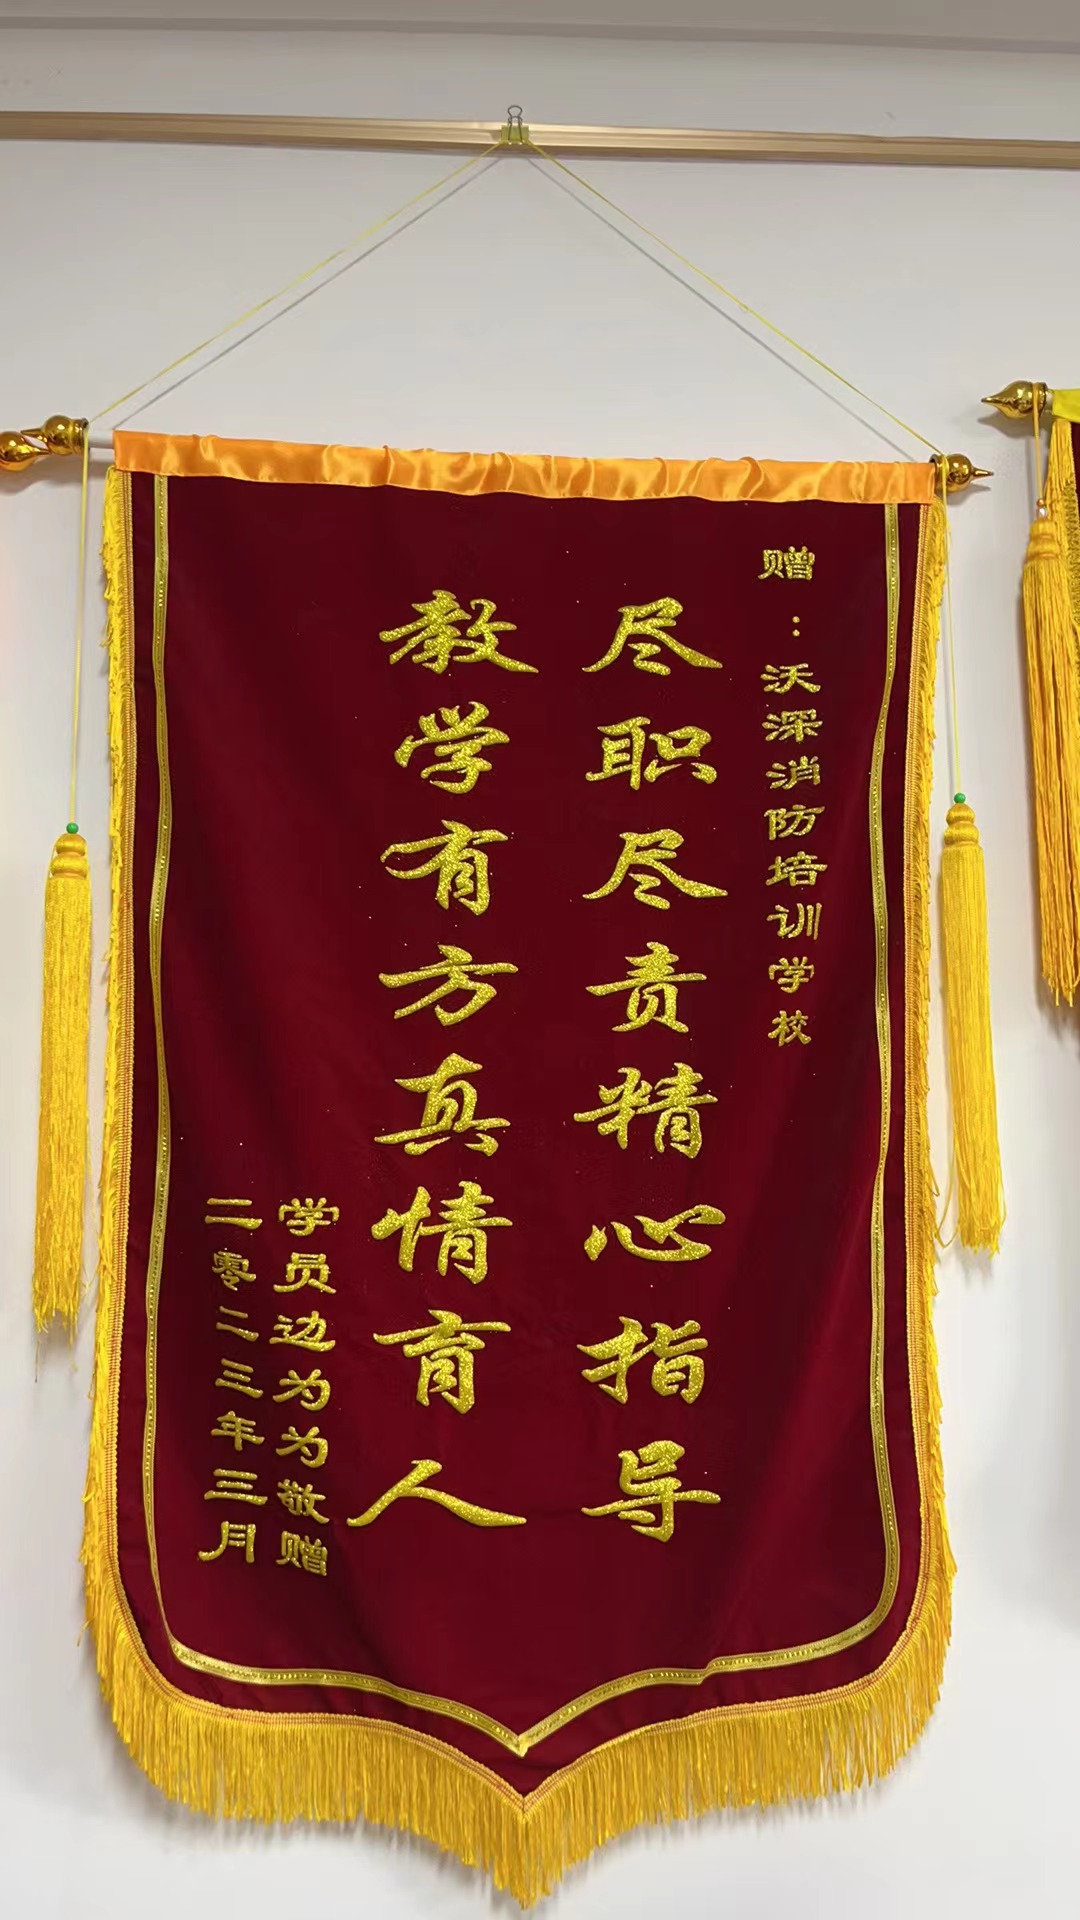 赠：沃深消防培训学校
尽职尽责精心指导
教学有方真情育人
学员边为为敬赠
二零二三年三月